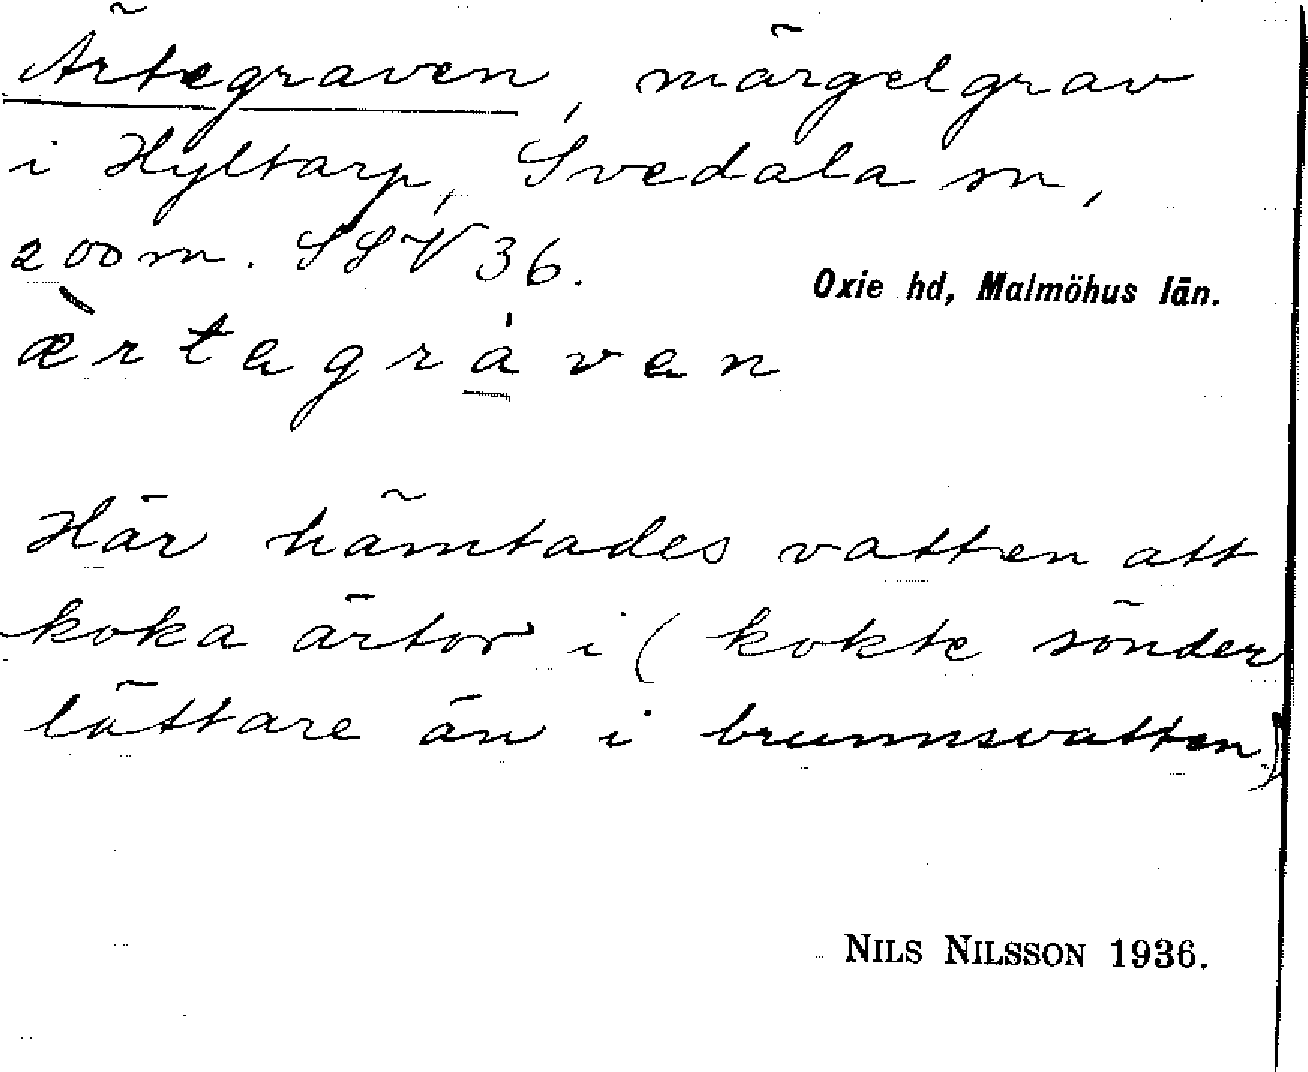 Ärtegraven, märgelgrav
i Hyltarp, Svedala sn,
200 m. SSV 36.
Oxie hd, Malmöhus län.
æ̀rtagrá̱ven
Här hämtades vatten att
koka ärtor i (kokte sönder
lättare än i brunnsvatten)
NILS NILSSON 1936.